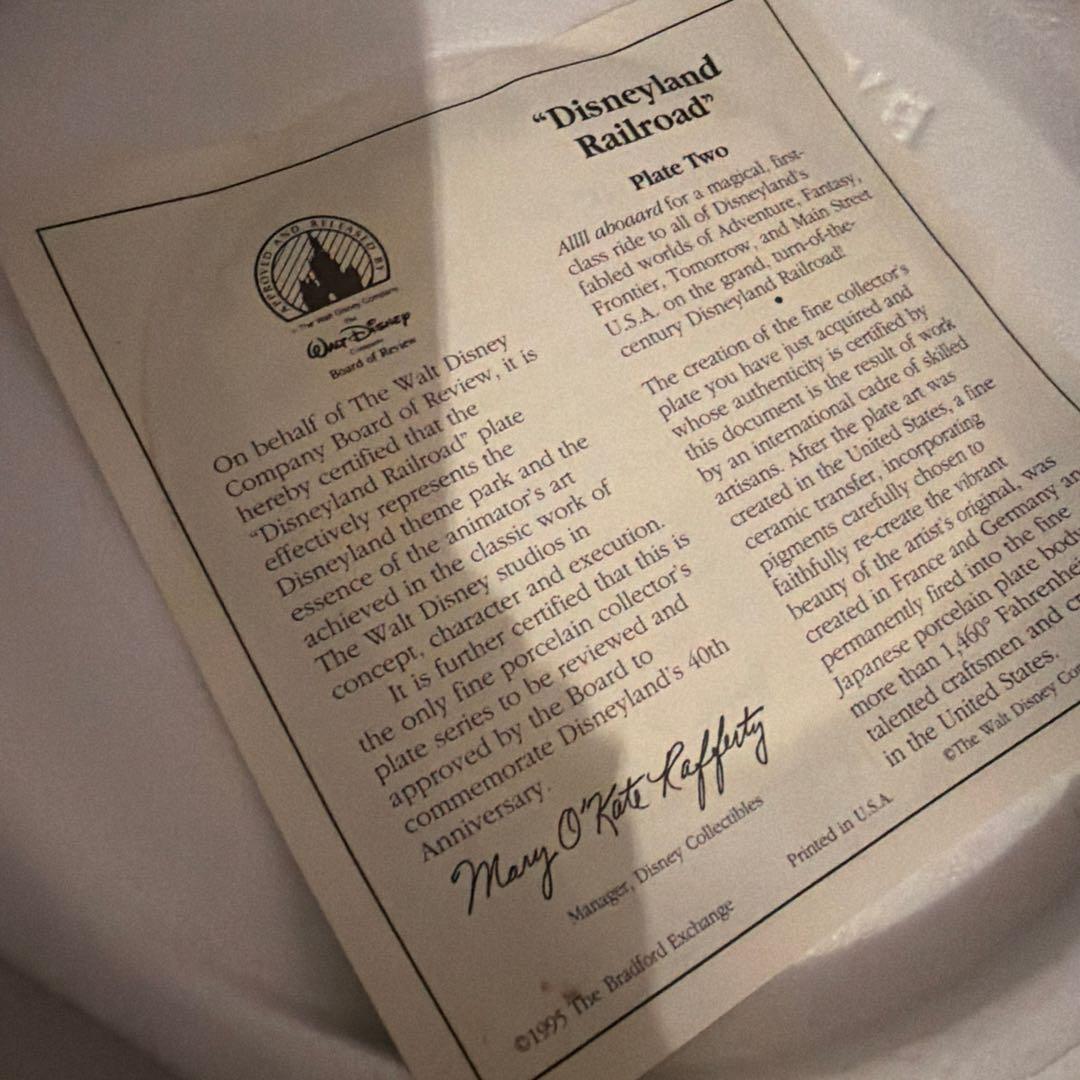 “Disneyland
Railroad”
Plate Two
Allll aboaard for a magical, first-
class ride to all of Disneyland's
fabled worlds of Adventure, Fantasy,
Frontier, Tomorrow, and Main Street
U.S.A. on the grand, turn-of-the-
century Disneyland Railroad!
•
The creation of the fine collector's
plate you have just acquired and
whose authenticity is certified by
this document is the result of work
by an international cadre of skilled
artisans. After the plate art was
created in the United States, a fine
ceramic transfer, incorporating
pigments carefully chosen to
faithfully re-create the vibrant
beauty of the artist's original, was
created in France and Germany an
permanently fired into the fine
Japanese porcelain plate body
more than 1,460° Fahrenhei
talented craftsmen and cr
in the United States.
©The Walt Disney Co
APPROVED AND RELEASED BY
The Walt Disney Company
The
WALT DISNEY
Company
Board of Review
On behalf of The Walt Disney
Company Board of Review, it is
hereby certified that the
“Disneyland Railroad” plate
effectively represents the
Disneyland theme park and the
essence of the animator's art
achieved in the classic work of
The Walt Disney studios in
concept, character and execution.
It is further certified that this is
the only fine porcelain collector's
plate series to be reviewed and
approved by the Board to
commemorate Disneyland's 40th
Anniversary.
Mary O'Kate Rafferty
Manager, Disney Collectibles
©1995 The Bradford Exchange
Printed in U.S.A.